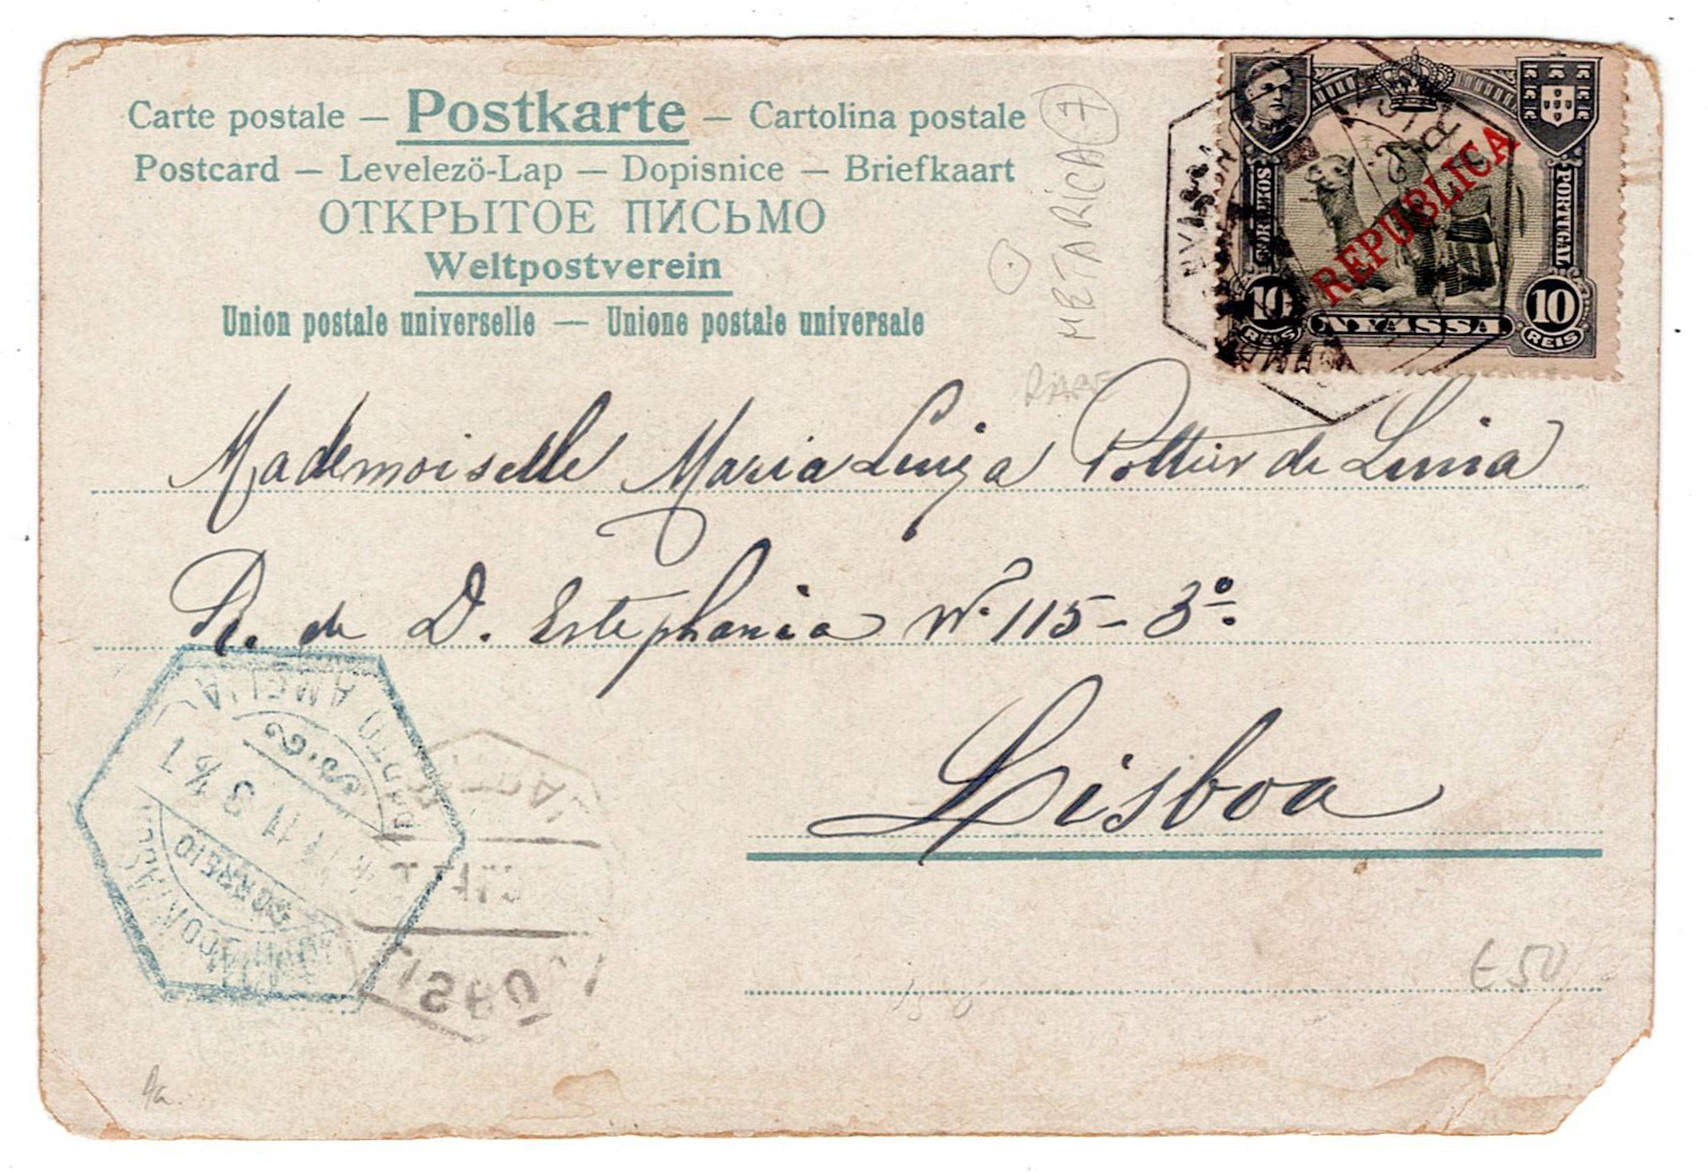 Carte postale — Postkarte — Cartolina postale
Postcard — Levelezö-Lap — Dopisnice — Briefkaart
ОТКРЫТОЕ ПИСЬМО
Weltpostverein
Union postale universelle — Unione postale universale
METARICA 7
RARE
CORREIOS
PORTUGAL
REPUBLICA
10 REIS
NYASSA
10 REIS
Mademoiselle Maria Luiza Pottier de Lima
R. de D. Estephania Nº 115 - 3º
Lisboa
PORTO AMELIA
CORREIO
LISBO
£50